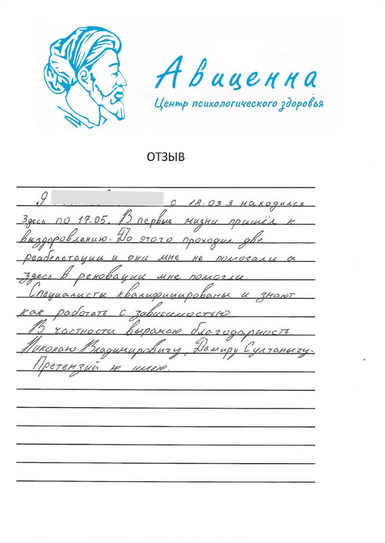 Авиценна
Центр психологического здоровья
ОТЗЫВ
Я с 18.03 я находился
здесь по 17.05. В первые жизни пришёл к
выздоровлению. До этого проходил две
реабелетации и они мне не помогали а
здесь в реновации мне помогли.
Специалисты квалифицированы и знают
как работать с зависимостью
В частности выражаю благодарность
Николаю Владимировичу, Дамиру Султаныгу.
Претензий не имею.